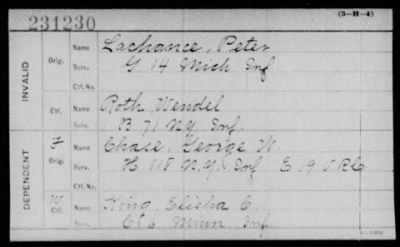 (3-H-4)
231230
INVALID
Orig.
Name Lachance, Peter
Serv. G 14 Mich Inf
Ctf. No.
Ctf.
Name Roth, Wendel
Serv. B 71 N.Y. Inf.
DEPENDENT
F
Orig.
Name Chase, George W.
Serv. H 118 N.Y. Inf E 19 V.R.C
Ctf. No.
W
Ctf.
Name King, Elisha C.
Serv. Minn Inf.